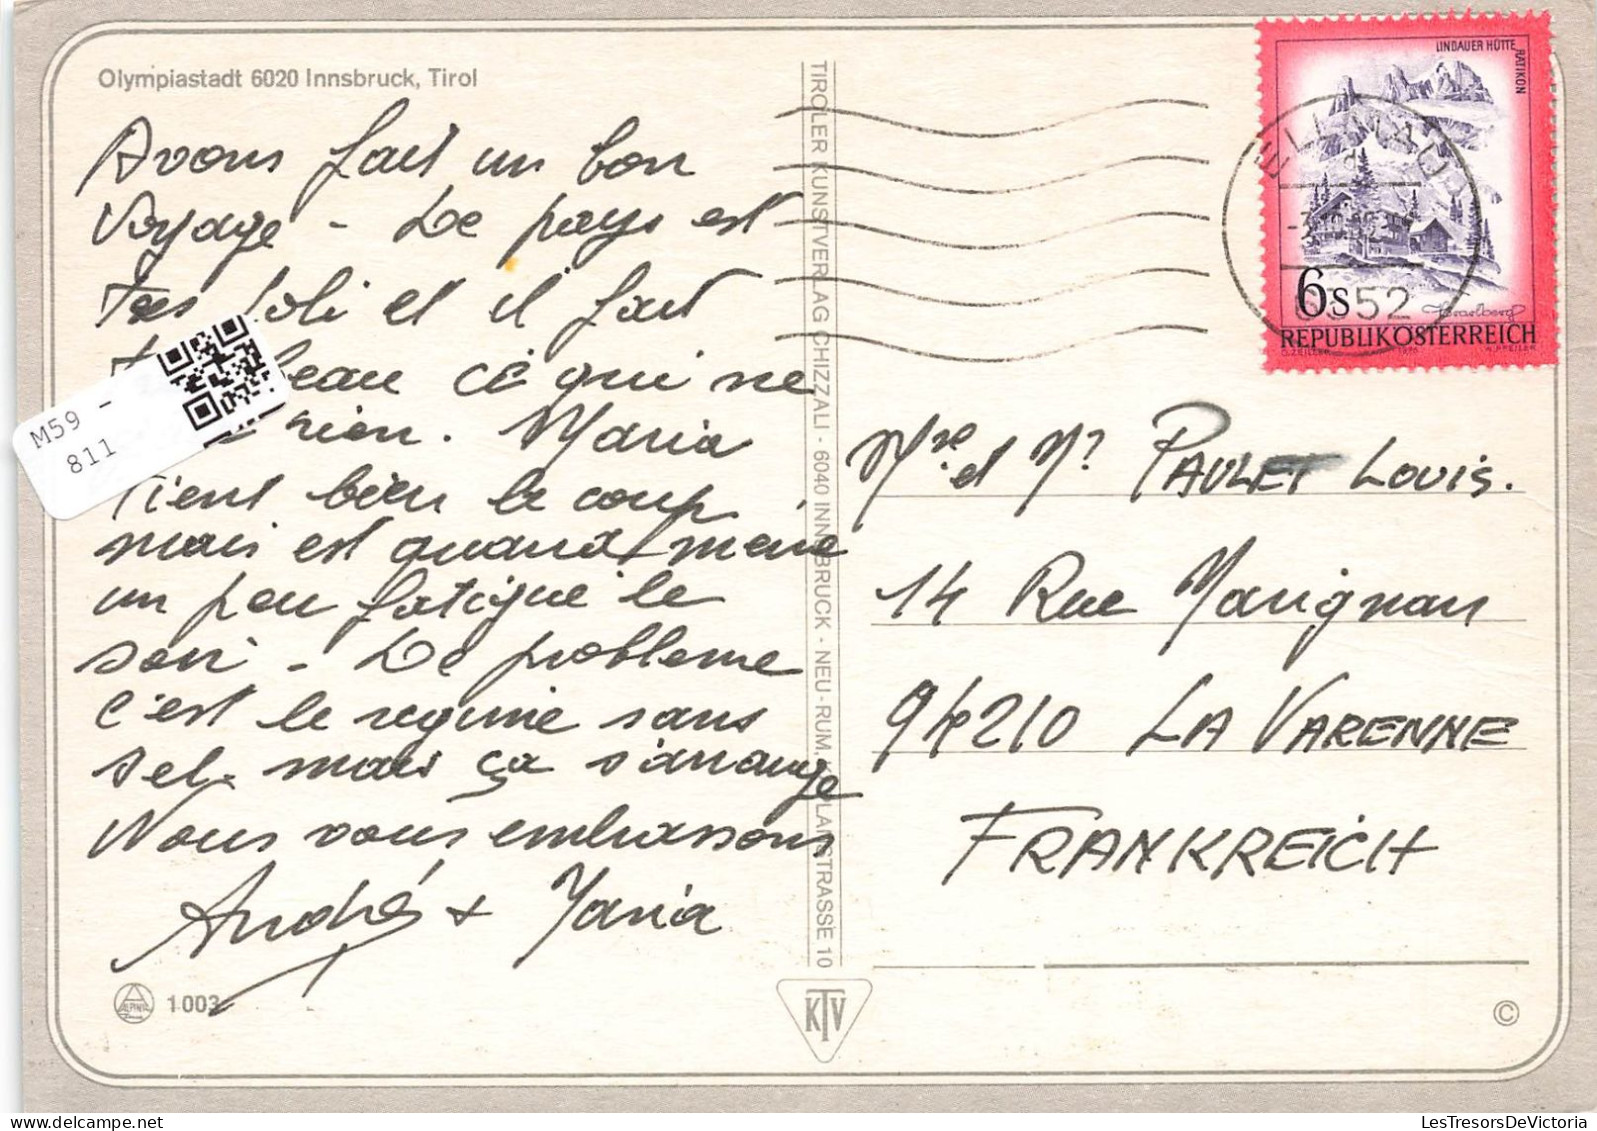 Olympiastadt 6020 Innsbruck, Tirol
Avons fait un bon
Voyage - Le pays est
très joli et il fait
beau ce qui ne
rien. Maria
Tient bien le coup
mais est quand même
un peu fatiguée le
soir - Le problème
c'est le regime sans
sel. mais ça s'arrange
Nous vous embrassons
André + Maria
1.003
M59 -
811
TIROLER KUNSTVERLAG CHIZZALI · 6040 INNSBRUCK · NEU-RUM, STRASSE 10
KTV
LINDAUER HÜTTE
RÄTIKON
ELLMAU
6352
6s
REPUBLIK ÖSTERREICH
Mre et Mr PAULET LOUIS.
14 Rue Marignan
94210 LA VARENNE
FRANKREICH
©
LesTresorsDeVictoria